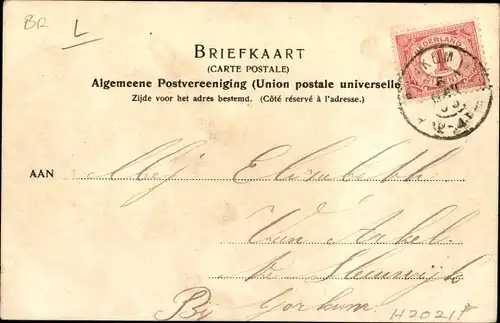 BR L
BRIEFKAART
(CARTE POSTALE)
Algemeene Postvereeniging (Union postale universelle)
Zijde voor het adres bestemd. (Côté réservé à l'adresse.)
NEDERLAND
1
AAN Mej Elisabeth
Van Andel
te Sleeuwijk
Bij Gorkum
H2021F